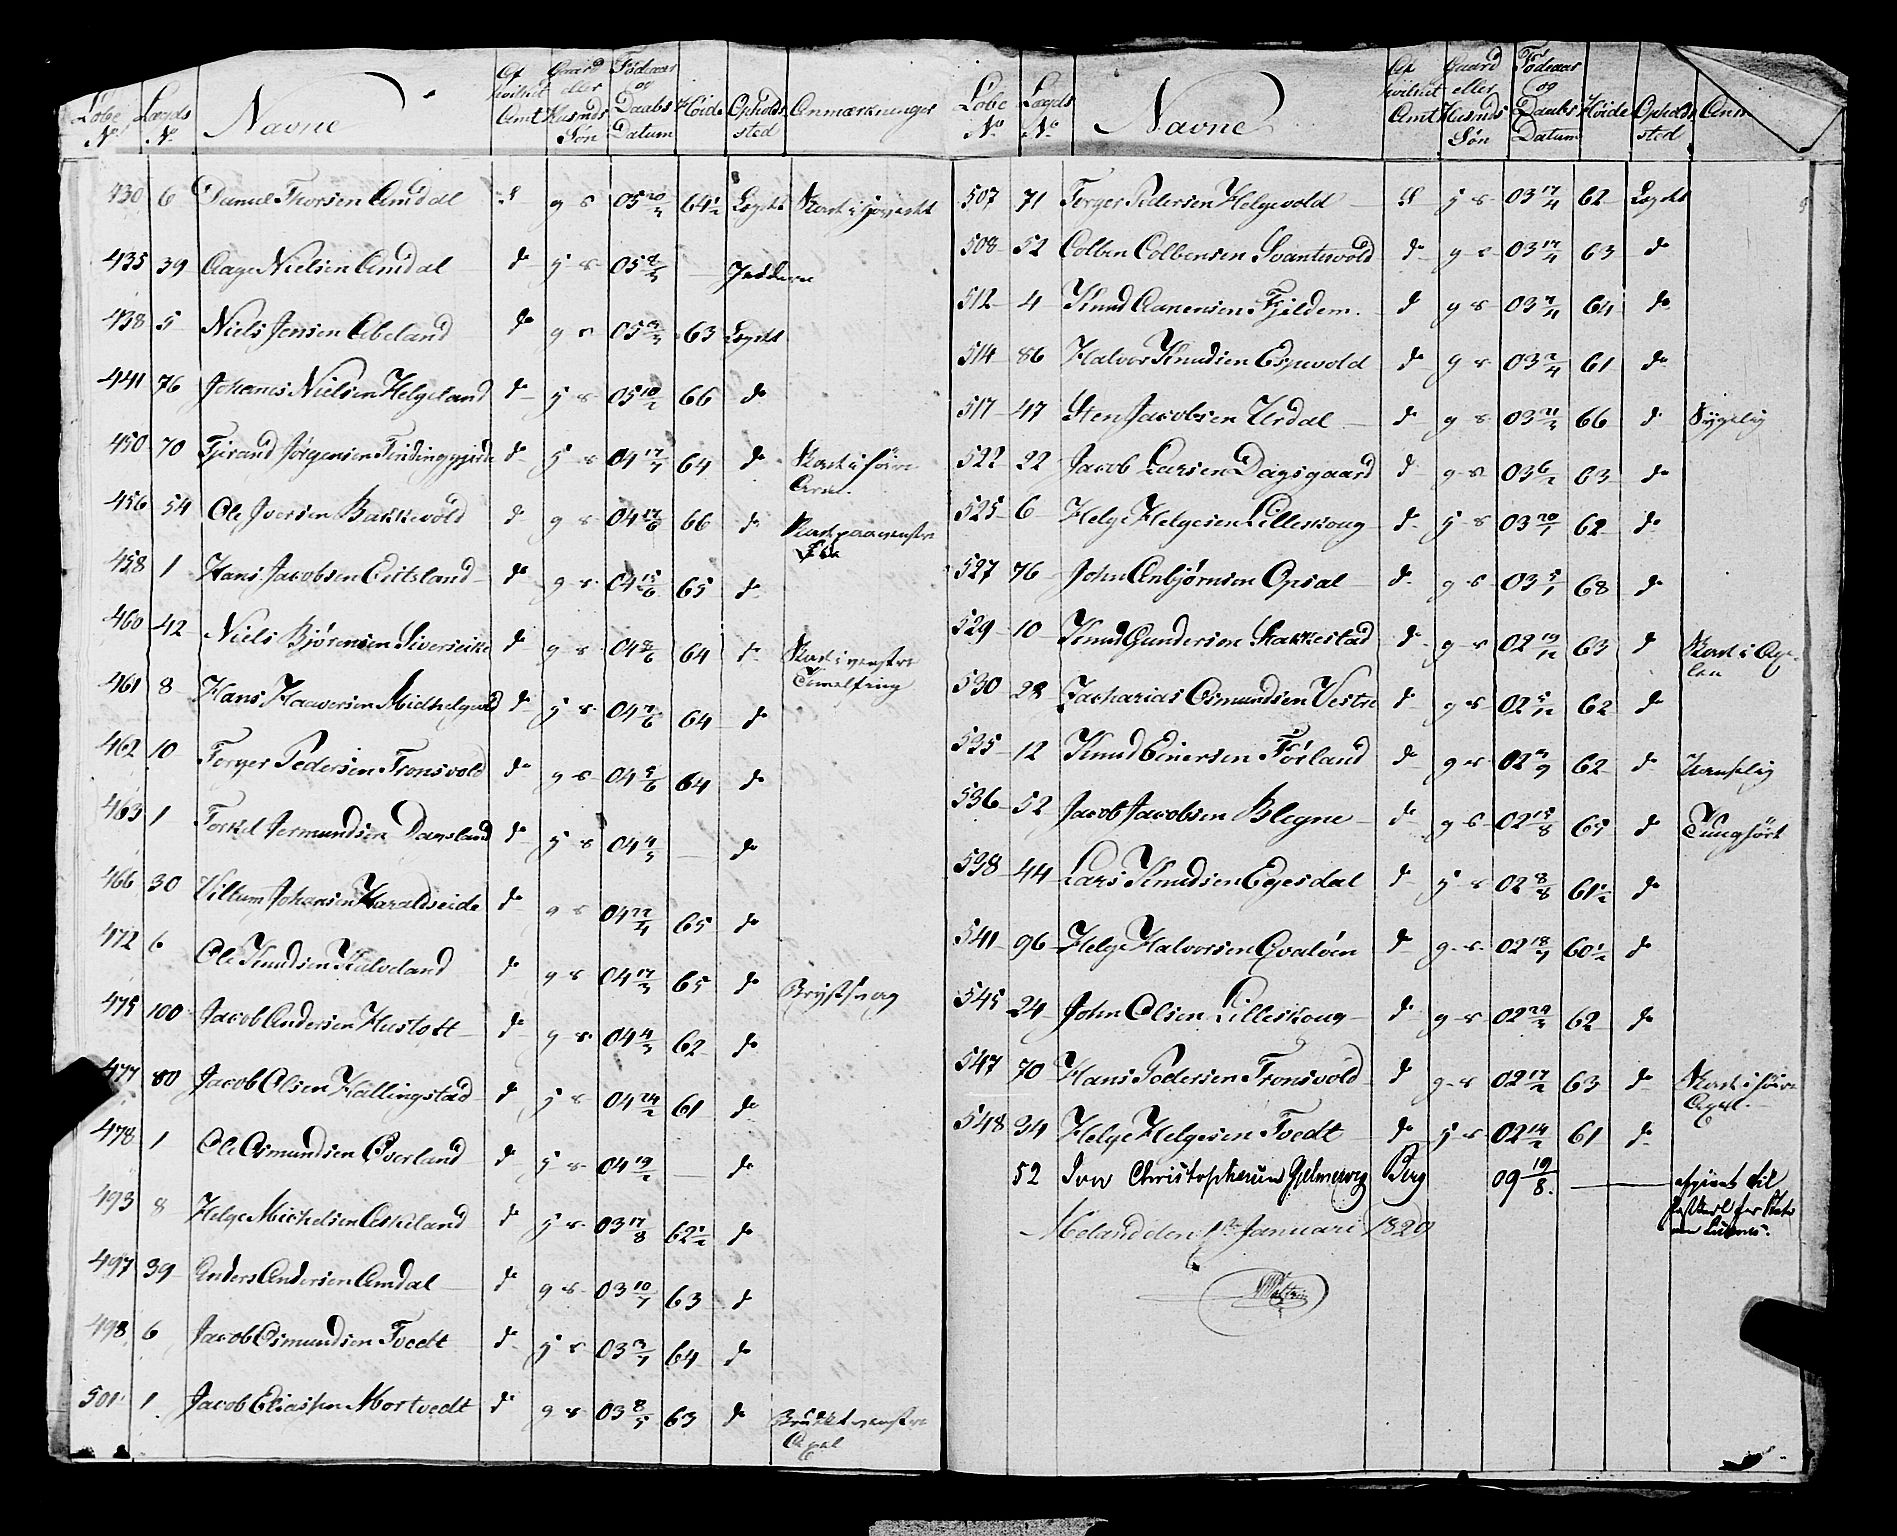 Løbe No | Lægds No | Navne | Af hvilket Amt | Gaard eller Huusmds Søn | Fødeaar og Daabs Datum | Høide | Opholds sted | Anmærkninger
430 6 Daniel Thorsen Amdal g s 05 20/3 64½ Lægdet
435 39 Aage Nielsen Amdal do g s 05 Jedderen
438 5 Niels Jensen Abeland do g s 05 63 Lægdet
441 76 Johanes Nielsen Helgeland do g s 05 18/2 66 do
450 70 Fjerand Jørgensen do g s 04 17/7 64 do Skadt i høire
Arm.
456 54 Ole Iversen Bakkevold do g s 04 17/6 66 do Skadt paa venstre
458 1 Hans Jacobsen Eritsland do g s 04 15/6 65 do
460 42 Niels Bjørensen do g s 04 8/6 64 do Skadt i venstre
Tomelfing
461 8 Hans Haaversen Midhelgevold do g s 04 7/6 64 do
462 10 Terger Pedersen Tronsvold do g s 04 5/6 64 do
463 1 Torkel Jermundsen Dagsland do g s 04 4/5 — do
466 30 Villum Johansen Haraldseide do g s 04 22/4 65 do
472 6 Ole Knudsen Kalveland do g s 04 17/3 65 do Brystsvag
475 100 Jacob Andersen Hustoft do g s 04 4/3 62 do
477 80 Jacob Olsen Hallingstad do g s 04 24/2 61 do
478 1 Ole Osmundsen Overland do g s 04 19/2 — do
493 8 Helge Michelsen Eskeland do g s 03 17/8 62½ do
497 39 Anders Andersen Amdal do g s 03 10/7 63 do
498 6 Jacob Osmundsen Tvedt do g s 03 3/7 64 do
501 1 Jacob Eliassen Mortvedt do g s 03 8/5 63 do Brukket venstre
Axel
Løbe No | Lægds No | Navne | Af hvilket Amt | Gaard eller Huusmds Søn | Fødeaar og Daabs Datum | Høide | Opholds sted | Anm
507 71 Terger Pedersen Helgevold g s 03 17/4 62 Lægdet
508 52 Colben Colbensen Svantesvold do g s 03 17/4 63 do
512 4 Knud Aanensen Fjildem. do g s 03 7/4 64 do
514 86 Halvor Knudsen Espevold do g s 03 2/4 61 do
517 47 Sten Jacobsen Urdal do g s 03 21/3 66 do Sygelig
522 22 Jacob Larsen Dagsgaard do g s 03 6/2 63 do
525 6 Helge Helgesen Lilleskoug do g s 03 20/1 62 do
527 76 John Anbjørnsen Opsal do g s 03 5/1 68 do
529 10 Knud Gundersen Stakkestad do g s 02 19/12 63 do Skadt i Ax-
len
530 28 Zacharias Osmundsen Vestre do g s 02 5/12 62 do
535 12 Knud Einersen Førland do g s 02 3/9 62 do
536 52 Jacob Jacobsen Blegne do g s 02 15/8 65 do Tunghørt
538 44 Lars Knudsen Egesdal do g s 02 8/8 61½ do
541 96 Helge Halvorsen Qvaløen do g s 02 18/7 60½ do
545 24 John Olsen Lilleskoug do g s 02 29/3 62 do
547 70 Hans Pedersen Tronsvold do g s 02 17/2 63 do Skadt i høire
Axel.
548 34 Helge Helgesen Tvedt do g s 02 14/2 61 do
52 Iver Christophersen Berg 09 19/8. — afgivet til
Meland den 1ste Januari 1820